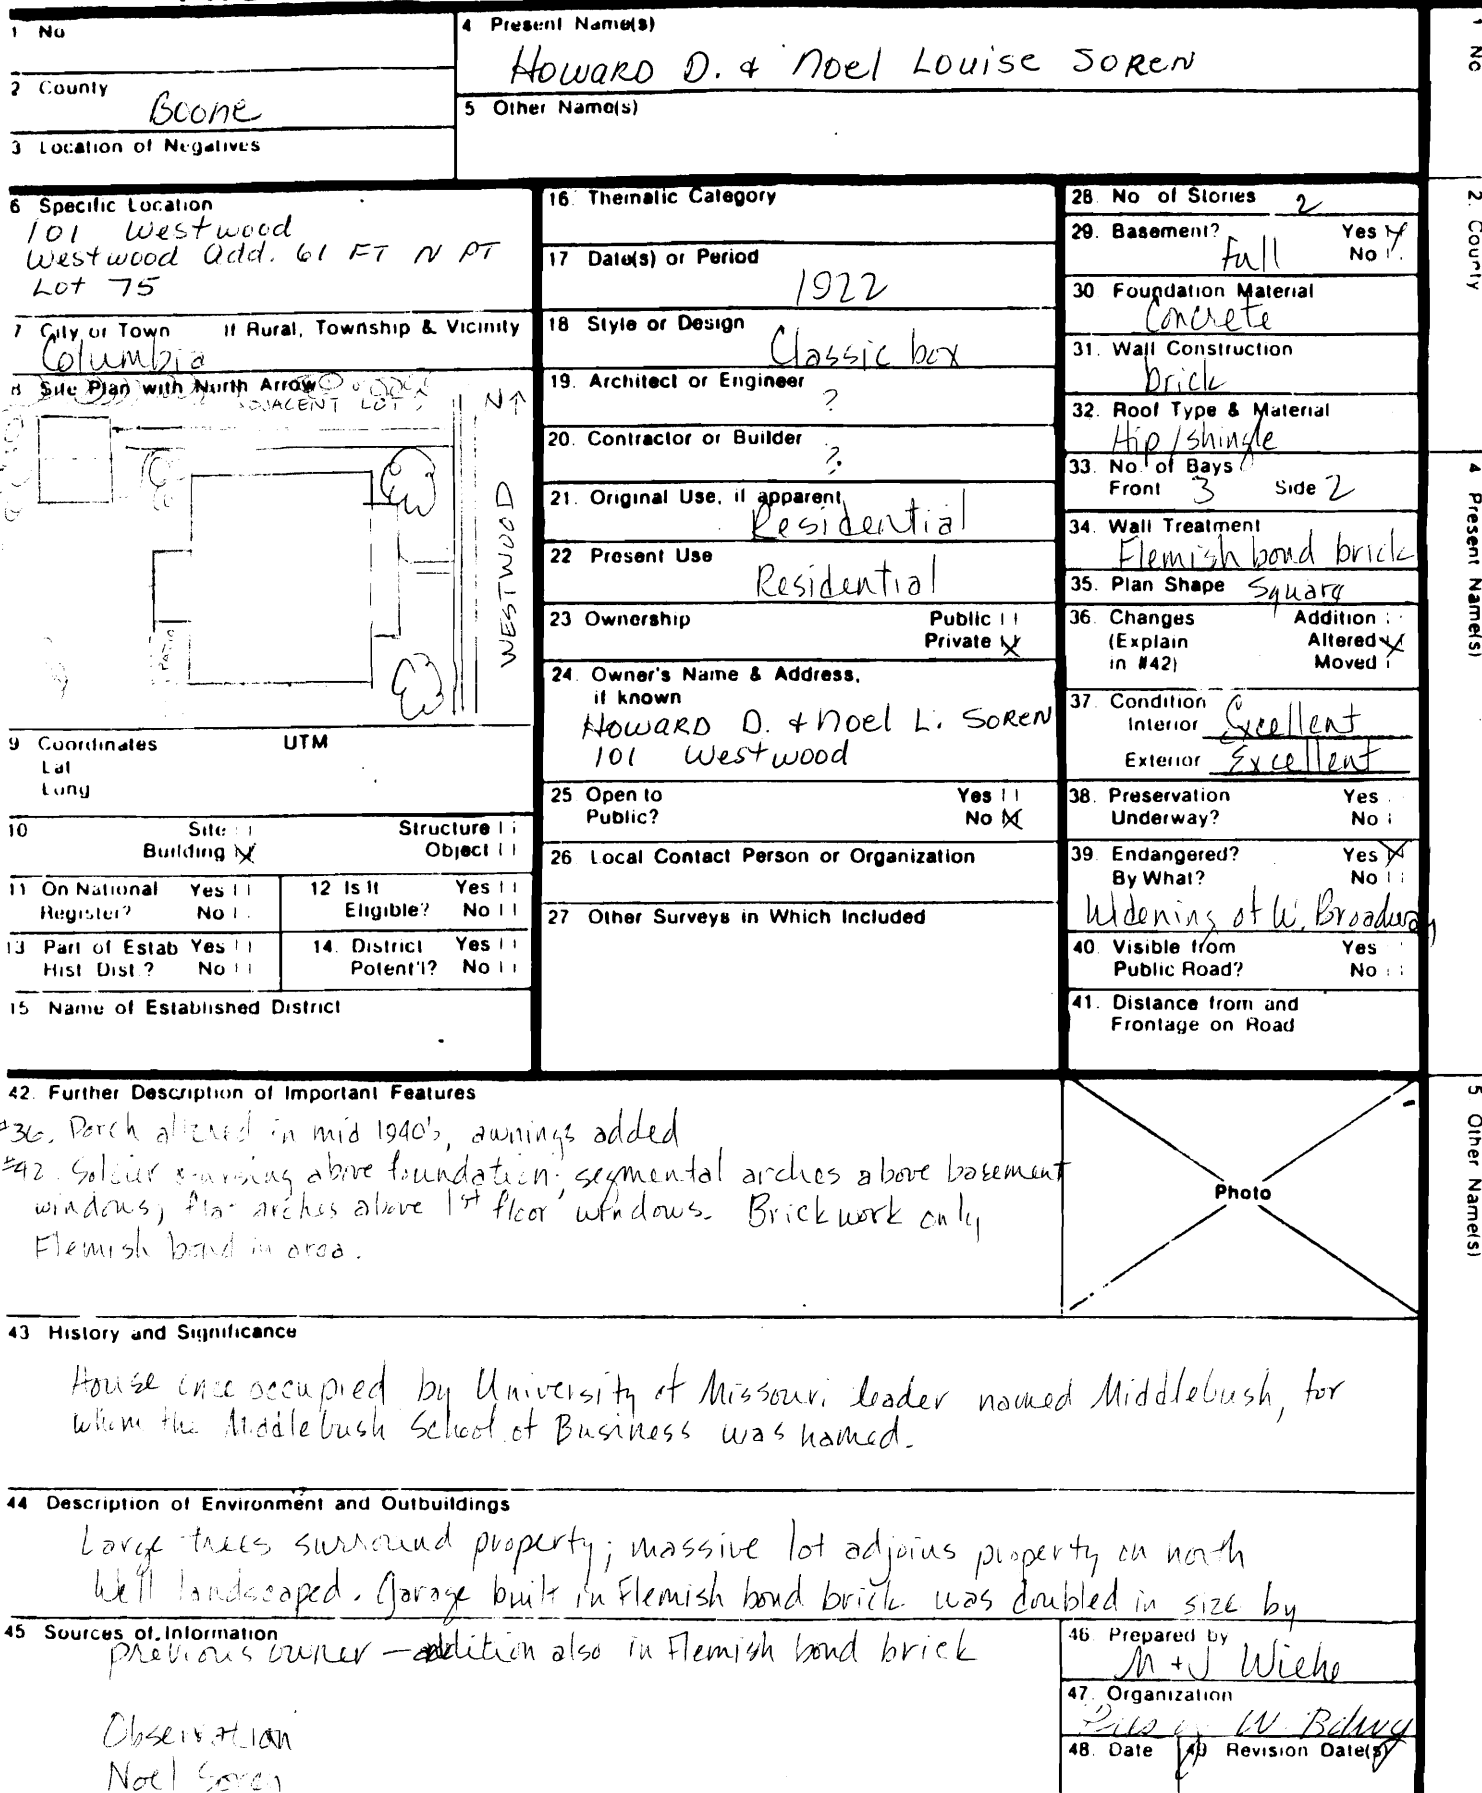 1 No
4 Present Name(s)
Howard D. & Noel Louise Soren
2 County
Boone
5 Other Name(s)
3 Location of Negatives
6 Specific Location
101 Westwood
Westwood Add. 61 FT N PT
Lot 75
7 City or Town If Rural, Township & Vicinity
Columbia
8 Site Plan with North Arrow
ADJACENT LOT
N↑
WESTWOOD
PATIO
9 Coordinates UTM
Lat
Long
10 Site
Structure
Building X
Object
11 On National Register? Yes No
12 Is It Eligible? Yes No
13 Part of Estab Hist Dist.? Yes No
14. District Potent'l? Yes No
15 Name of Established District
16. Thematic Category
17 Date(s) or Period
1922
18 Style or Design
Classic box
19. Architect or Engineer
?
20. Contractor or Builder
?
21. Original Use, if apparent
Residential
22 Present Use
Residential
23 Ownership Public
Private X
24. Owner's Name & Address,
if known
Howard D. & Noel L. Soren
101 Westwood
25 Open to Yes
Public? No X
26. Local Contact Person or Organization
27 Other Surveys in Which Included
28. No of Stories 2
29. Basement? Yes X
Full No
30 Foundation Material
Concrete
31. Wall Construction
brick
32. Roof Type & Material
Hip/shingle
33. No. of Bays
Front 3 Side 2
34. Wall Treatment
Flemish bond brick
35. Plan Shape Square
36. Changes Addition
(Explain Altered X
in #42) Moved
37. Condition
Interior Excellent
Exterior Excellent
38. Preservation Yes
Underway? No
39. Endangered? Yes X
By What? No
Widening of W. Broadway
40. Visible from Yes
Public Road? No
41. Distance from and
Frontage on Road
42. Further Description of Important Features
#36. Porch altered in mid 1940's, awnings added
#42. Soldier coursing above foundation; segmental arches above basement
windows; flat arches above 1st floor windows. Brickwork only
Flemish bond in area.
Photo
43 History and Significance
House once occupied by University of Missouri leader named Middlebush, for
whom the Middlebush School of Business was named.
44 Description of Environment and Outbuildings
Large trees surround property; massive lot adjoins property on north
Well landscaped. Garage built in Flemish bond brick was doubled in size by
45 Sources of Information
previous owner — addition also in Flemish bond brick
Observation
Noel Soren
46. Prepared by
M + J Wiehe
47. Organization
W. Bdwy
48. Date 49 Revision Date(s)
1 No
2. County
4 Present Name(s)
5 Other Name(s)